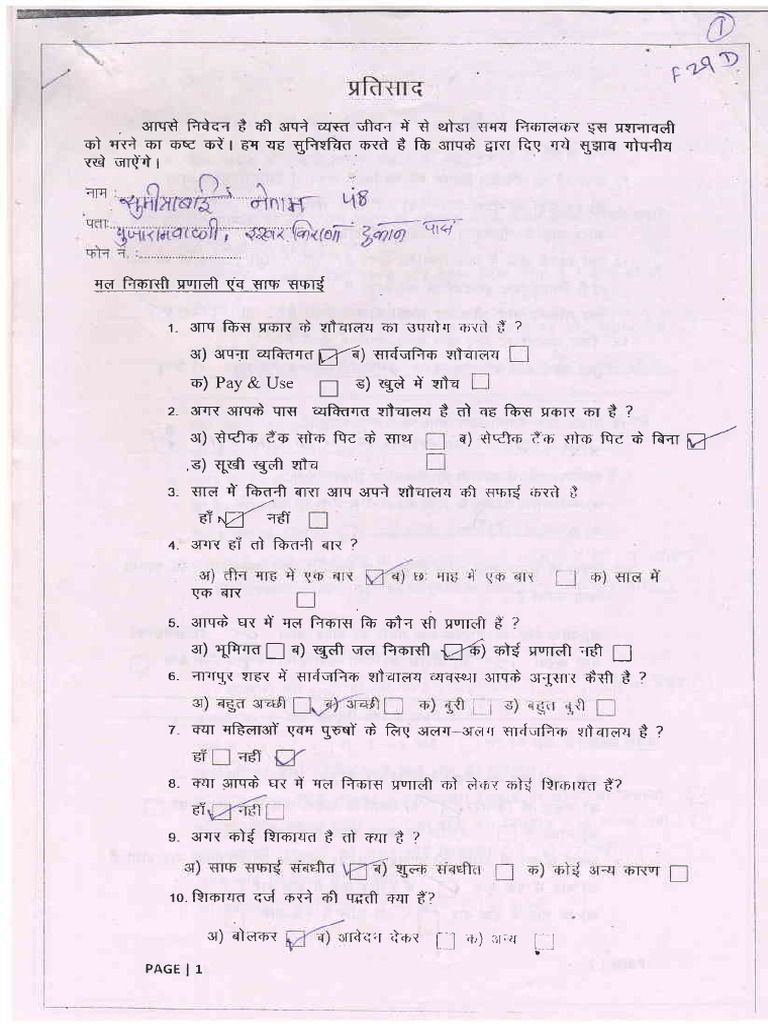 1
F29D
प्रतिसाद
आपसे निवेदन है की अपने व्यस्त जीवन में से थोडा समय निकालकर इस प्रशनावली
को भरने का कष्ट करें। हम यह सुनिश्चित करते है कि आपके द्वारा दिए गये सुझाव गोपनीय
रखे जाऐंगे।
नाम : सुमीत्राबाई नेताम 48
पता: दुकान पास
फोन नं. :
मल निकासी प्रणाली एंव साफ सफाई
1. आप किस प्रकार के शौचालय का उपयोग करते हैं ?
अ) अपना व्यक्तिगत ब) सार्वजनिक शौचालय
क) Pay & Use ड) खुले में शौच
2. अगर आपके पास व्यक्तिगत शौचालय है तो वह किस प्रकार का है ?
अ) सेप्टीक टैंक सोक पिट के साथ ब) सेप्टीक टैंक सोक पिट के बिना
ड) सूखी खुली शौच
3. साल में कितनी बारा आप अपने शौचालय की सफाई करते है
हाँ नहीं
4. अगर हाँ तो कितनी बार ?
अ) तीन माह में एक बार ब) छः माह में एक बार क) साल में
एक बार
5. आपके घर में मल निकास कि कौन सी प्रणाली हैं ?
अ) भूमिगत ब) खुली जल निकासी क) कोई प्रणाली नही
6. नागपुर शहर में सार्वजनिक शौचालय व्यवस्था आपके अनुसार कैसी है ?
अ) बहुत अच्छी ब) अच्छी क) बुरी ड) बहुत बुरी
7. क्या महिलाओं एवम पुरुषों के लिए अलग-अलग सार्वजनिक शौचालय है ?
हाँ नहीं
8. क्या आपके घर में मल निकास प्रणाली को लेकर कोई शिकायत हैं?
हाँ नहीं
9. अगर कोई शिकायत है तो क्या है ?
अ) साफ सफाई संबधीत ब) शुल्क संबधीत क) कोई अन्य कारण
10. शिकायत दर्ज करने की पद्वती क्या हैं?
अ) बोलकर ब) आवेदन देकर क) अन्य
PAGE | 1